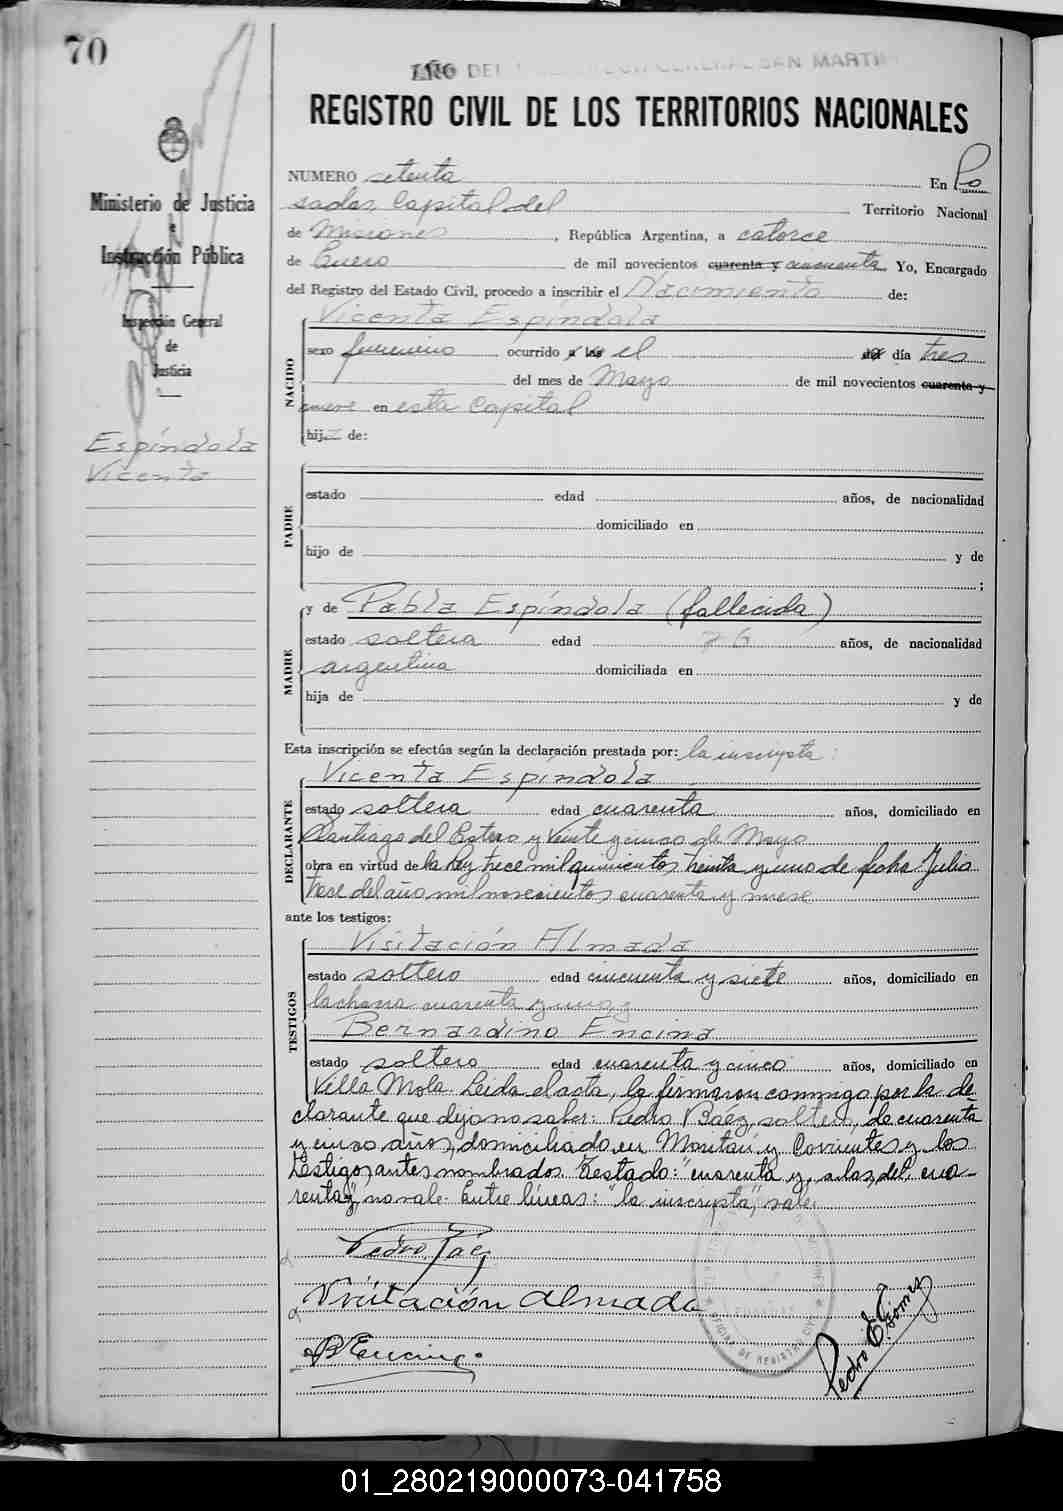 70
AÑO DEL LIBERTADOR GENERAL SAN MARTIN
REGISTRO CIVIL DE LOS TERRITORIOS NACIONALES
Ministerio de Justicia
e
Instrucción Pública
Inspección General
de
Justicia
Espíndola
Vicenta
NUMERO setenta En Po
sadas, Capital del Territorio Nacional
de Misiones, República Argentina, a catorce
de Enero de mil novecientos cuarenta y cincuenta Yo, Encargado
del Registro del Estado Civil, procedo a inscribir el Nacimiento de:
NACIDO
Vicenta Espíndola
sexo femenino ocurrido a las el del día tres
del mes de Mayo de mil novecientos cuarenta y
nueve en esta Capital
hija de:
PADRE
estado edad años, de nacionalidad
domiciliado en
hijo de y de
;
MADRE
y de Pabla Espíndola (fallecida)
estado soltera edad 26 años, de nacionalidad
argentina domiciliada en
hija de y de
Esta inscripción se efectúa según la declaración prestada por: la inscripta:
DECLARANTE
Vicenta Espíndola
estado soltera edad cuarenta años, domiciliado en
Santiago del Estero y Veinte y cinco de Mayo
obra en virtud de la ley trece mil quinientos treinta y uno de fecha Julio
trese del año mil novecientos cuarenta y nueve
ante los testigos:
TESTIGOS
Visitación Almada
estado soltero edad cincuenta y siete años, domiciliado en
la chacra cuarenta y una y
Bernardino Encina
estado soltero edad cuarenta y cinco años, domiciliado en
Villa Mola. Leida el acta, la firmaron conmigo, por la de
clarante que dijo no saber: Pedro Báez, soltero, de cuarenta
y cinco años, domiciliado en Maritaú y Corrientes y los
testigos antes nombrados. Testado: "cuarenta y, a las, del, cua-
renta y," no vale. Entre lineas: "la inscripta", vale.
Pedro Báez
Visitación Almada
B Encina.
Pedro E. Gomez
OFICINA DE REGISTRO CIVIL
01_280219000073-041758